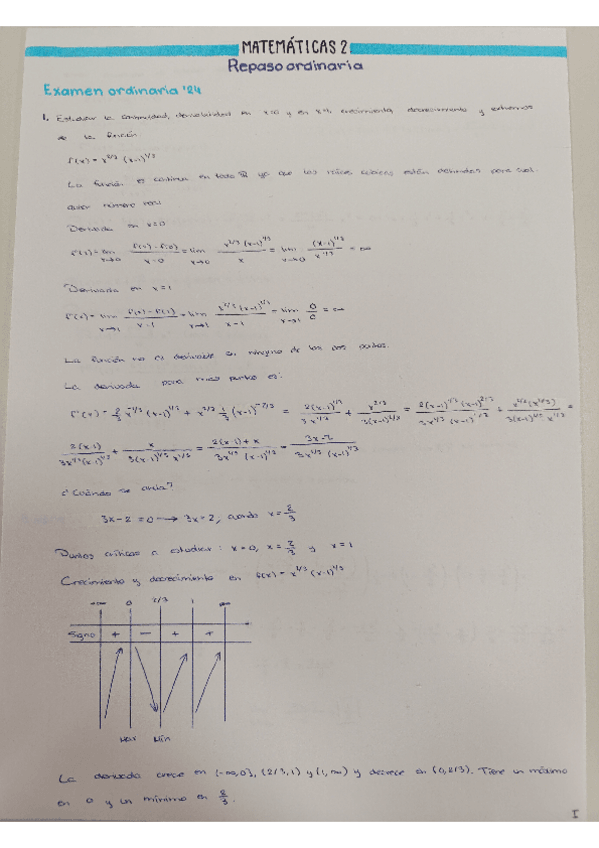 MATEMÁTICAS 2
Repaso ordinaria
Examen ordinaria '24
1. Estudiar la continuidad, derivabilidad en x=0 y en x=1, crecimiento, decrecimiento y extremos
de la función
f(x) = x^{2/3} (x-1)^{1/3}
La función es continua en todo ℝ ya que las raíces cúbicas están definidas para cual-
quier número real
Derivada en x=0
f'(x) = lim_{x→0} (f(x) - f(0))/(x-0) = lim_{x→0} (x^{2/3} (x-1)^{1/3})/x = lim_{x→0} (x-1)^{1/3}/x^{1/3} = ∞
Derivada en x=1
f'(x) = lim_{x→1} (f(x) - f(1))/(x-1) = lim_{x→1} (x^{2/3} (x-1)^{1/3})/(x-1) = lim_{x→1} 0/0 = ∞
La función no es derivable en ninguno de los dos puntos.
La derivada para puntos es:
f'(x) = 2/3 x^{-1/3} (x-1)^{1/3} + x^{2/3} 1/3 (x-1)^{-2/3} = 2(x-1)^{1/3}/3x^{1/3} + x^{2/3}/3(x-1)^{2/3} = 2(x-1)^{1/3} (x-1)^{2/3}/3x^{1/3} (x-1)^{2/3} + x^{2/3}(x^{1/3})/3(x-1)^{2/3} x^{1/3} =
2(x-1)/3x^{1/3}(x-1)^{2/3} + x/3(x-1)^{2/3} x^{1/3} = (2(x-1)+x)/3x^{1/3} (x-1)^{2/3} = (3x-2)/3x^{1/3} (x-1)^{2/3}
¿Cuándo se anula?
3x-2 = 0 → 3x=2, cuando x = 2/3
Puntos críticos a estudiar: x=0, x = 2/3 y x=1
Crecimiento y decrecimiento en f(x) = x^{2/3} (x-1)^{1/3}
-∞ 0 2/3 1 ∞
Signo + - + +
Max Min
La derivada crece en (-∞,0), (2/3,1) y (1,∞) y decrece en (0,2/3). Tiene un máximo
en 0 y un mínimo en 2/3.
I